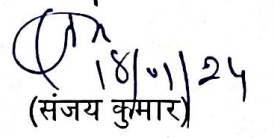 18/01/24
(संजय कुमार)